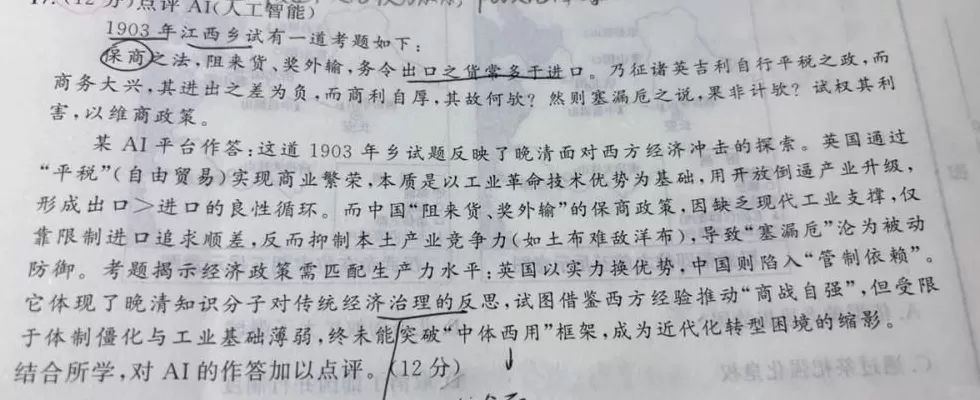 17.(12分)点评AI(人工智能)
1903年江西乡试有一道考题如下：
保商之法，阻来货、奖外输，务令出口之货常多于进口。乃征诸英吉利自行平税之政，而
商务大兴，其进出之差为负，而商利自厚，其故何欤？然则塞漏卮之说，果非计欤？试权其利
害，以维商政策。
某AI平台作答：这道1903年乡试题反映了晚清面对西方经济冲击的探索。英国通过
“平税”(自由贸易)实现商业繁荣，本质是以工业革命技术优势为基础，用开放倒逼产业升级，
形成出口＞进口的良性循环。而中国“阻来货、奖外输”的保商政策，因缺乏现代工业支撑，仅
靠限制进口追求顺差，反而抑制本土产业竞争力(如土布难敌洋布)，导致“塞漏卮”沦为被动
防御。考题揭示经济政策需匹配生产力水平：英国以实力换优势，中国则陷入“管制依赖”。
它体现了晚清知识分子对传统经济治理的反思，试图借鉴西方经验推动“商战自强”，但受限
于体制僵化与工业基础薄弱，终未能突破“中体西用”框架，成为近代化转型困境的缩影。
结合所学，对AI的作答加以点评。(12分)